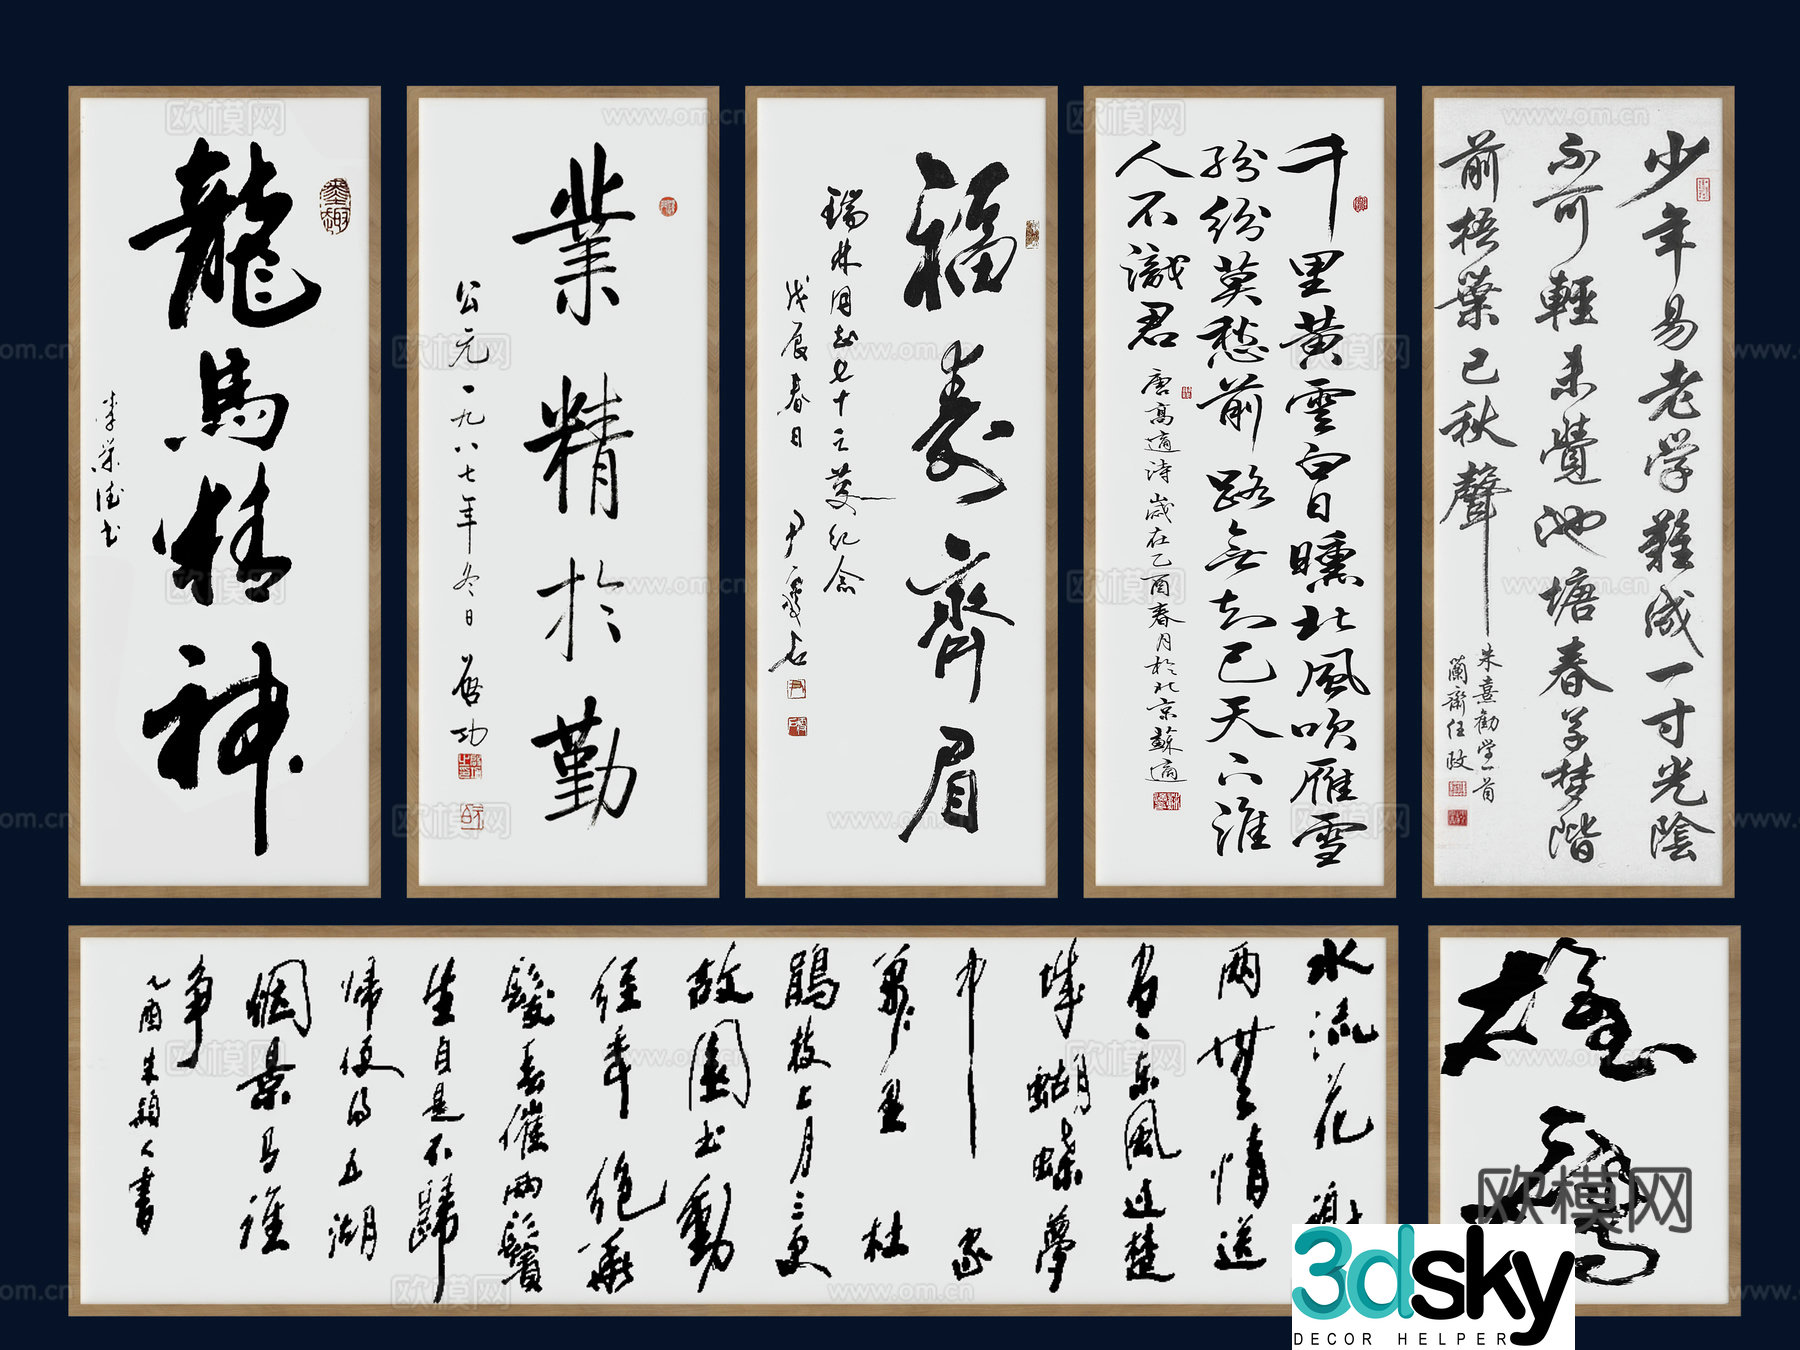 龍馬精神
李榮德书
墨趣
業精於勤
公元一九八七年冬日
啓功
福壽齊眉
瑞林同志七十之慶纪念
戊辰春日
尹瘦石
千里黄雲白日曛北風吹雁雪
紛紛莫愁前路無知己天下誰
人不識君
唐高適诗歲在乙酉春月於北京蘇適
少年易老学難成一寸光陰
不可輕未覺池塘春草梦階
前梧葉已秋聲
朱熹勸学一首
蘭齋任政
水流花謝
兩無情送
盡東風過楚
城蝴蝶夢
中家
萬里杜
鵑枝上月三更
故園书動
经年绝華
髮春催兩鬢
生自是不歸
歸便得五湖
烟景有誰
争
乙酉朱穎人書
雄
欧模网
www.om.cn
3dsky
DECOR HELPER